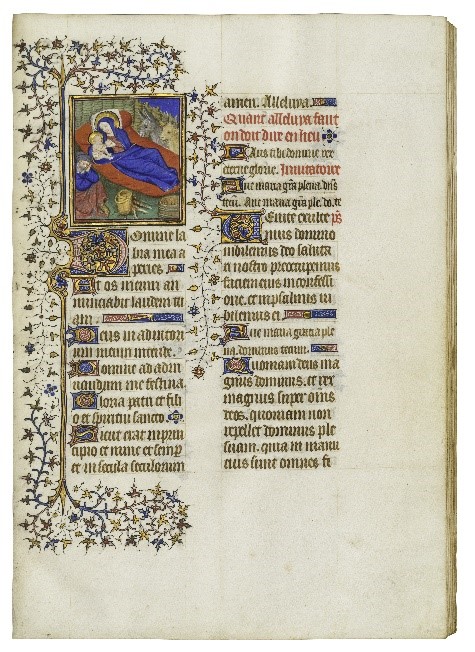 Domine la
bia mea a
peries.
Et os meum an
nunciabit laudem tu
am.
Deus in adiutori
um meum intende.
Domine ad adiu
vandum me festina.
Gloria patri et fili
o et spiritui sancto.
Sicut erat in prin
cipio et nunc et semp
et in secula seculorum
amen. Alleluya.
Quant alleluya fault
on doit dire en lieu
Laus tibi domine rex
eterne glorie. Invitatoire
Ave maria gra plena dns
tecu. Ave maria gra ple. do. te.
Venite exultem ps
mus domino
iubilemus deo saluta
ri nostro preoccupemus
faciem eius in confessi
one. et in psalmis iu
bilemus ei.
Ave maria gracia ple
na dominus tecum.
Quoniam deus ma
gnus dominus. et rex
magnus super omes
deos. quoniam non
repellet dominus ple
suam. quia in manu
eius sunt omnes fi